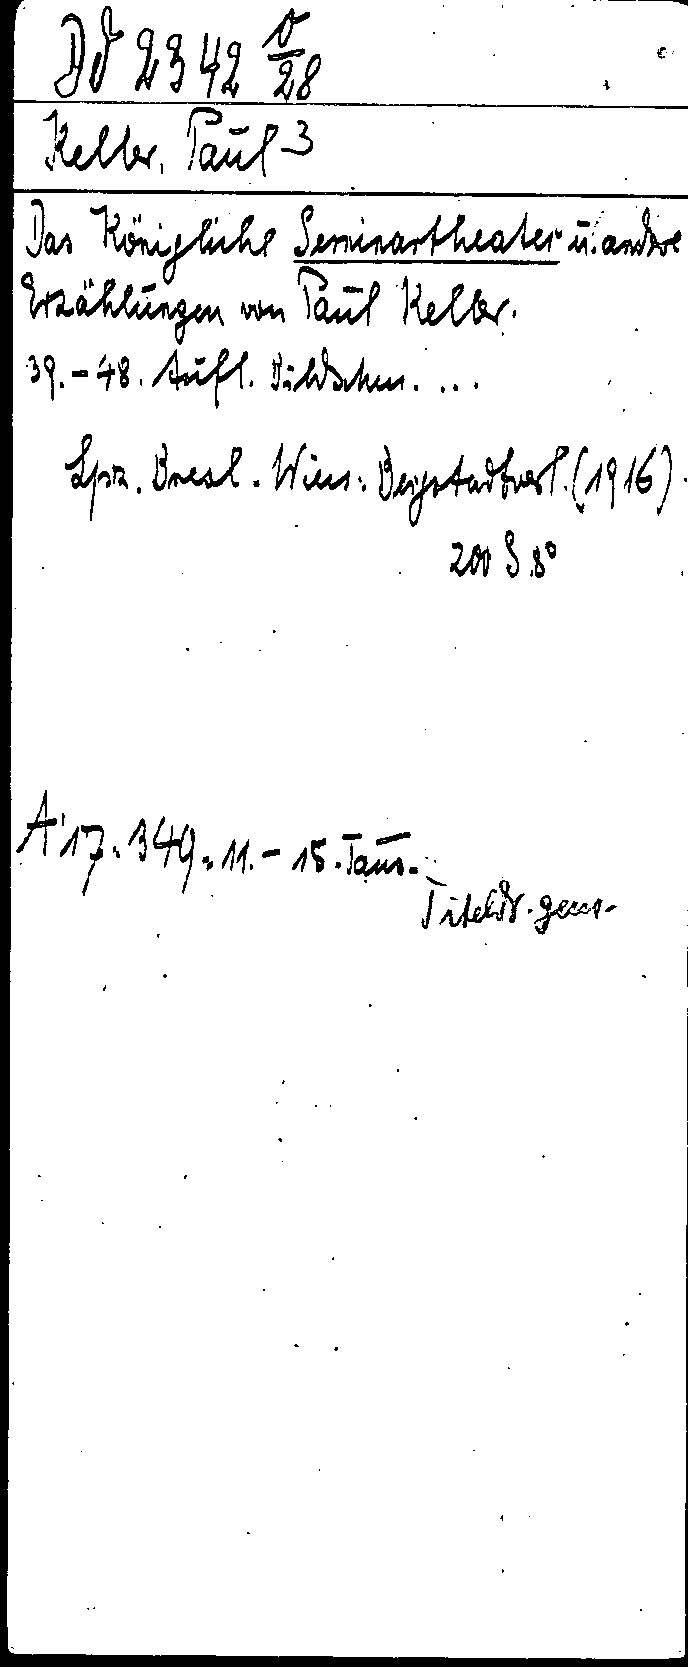 Dd 2342 v/28
Keller, Paul 3
Das Königliche Seminartheater u. andere
Erzählungen von Paul Keller.
39.-48. Aufl. Bildschm. ...
Lpz. Bresl. Wien: Bergstadtverl. (1916)
200 S. 8°
A'17.349. 11.-15. Taus.
Titeldr. gem.